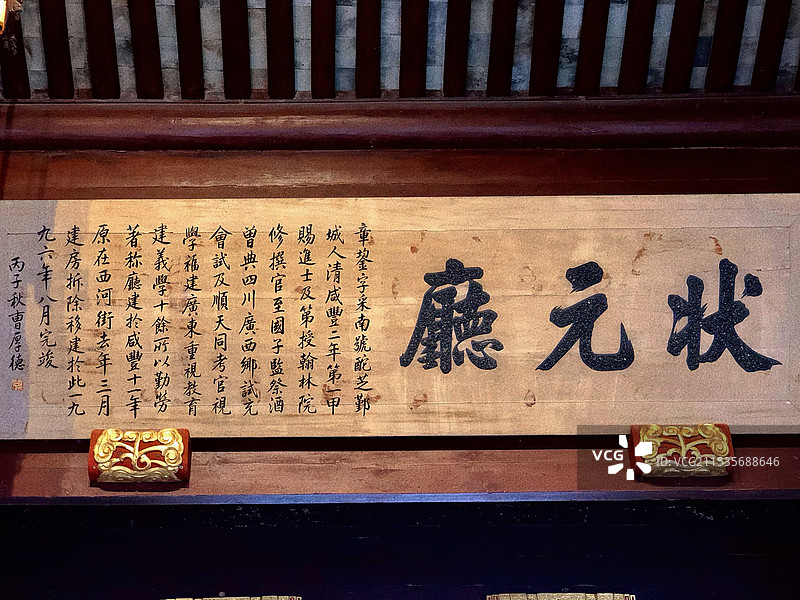 状元廳
章鋆字采南號酡芝鄞
城人清咸豐二年第一甲
賜進士及第授翰林院
修撰官至國子監祭酒
曾典四川廣西鄉試充
會試及順天同考官視
學福建廣東重視教育
建義學十餘所以勤勞
著称廳建於咸豐十一年
原在西河街去年三月
建房拆除移建於此一九
九六年八月完竣
丙子秋曹厚德
VCG